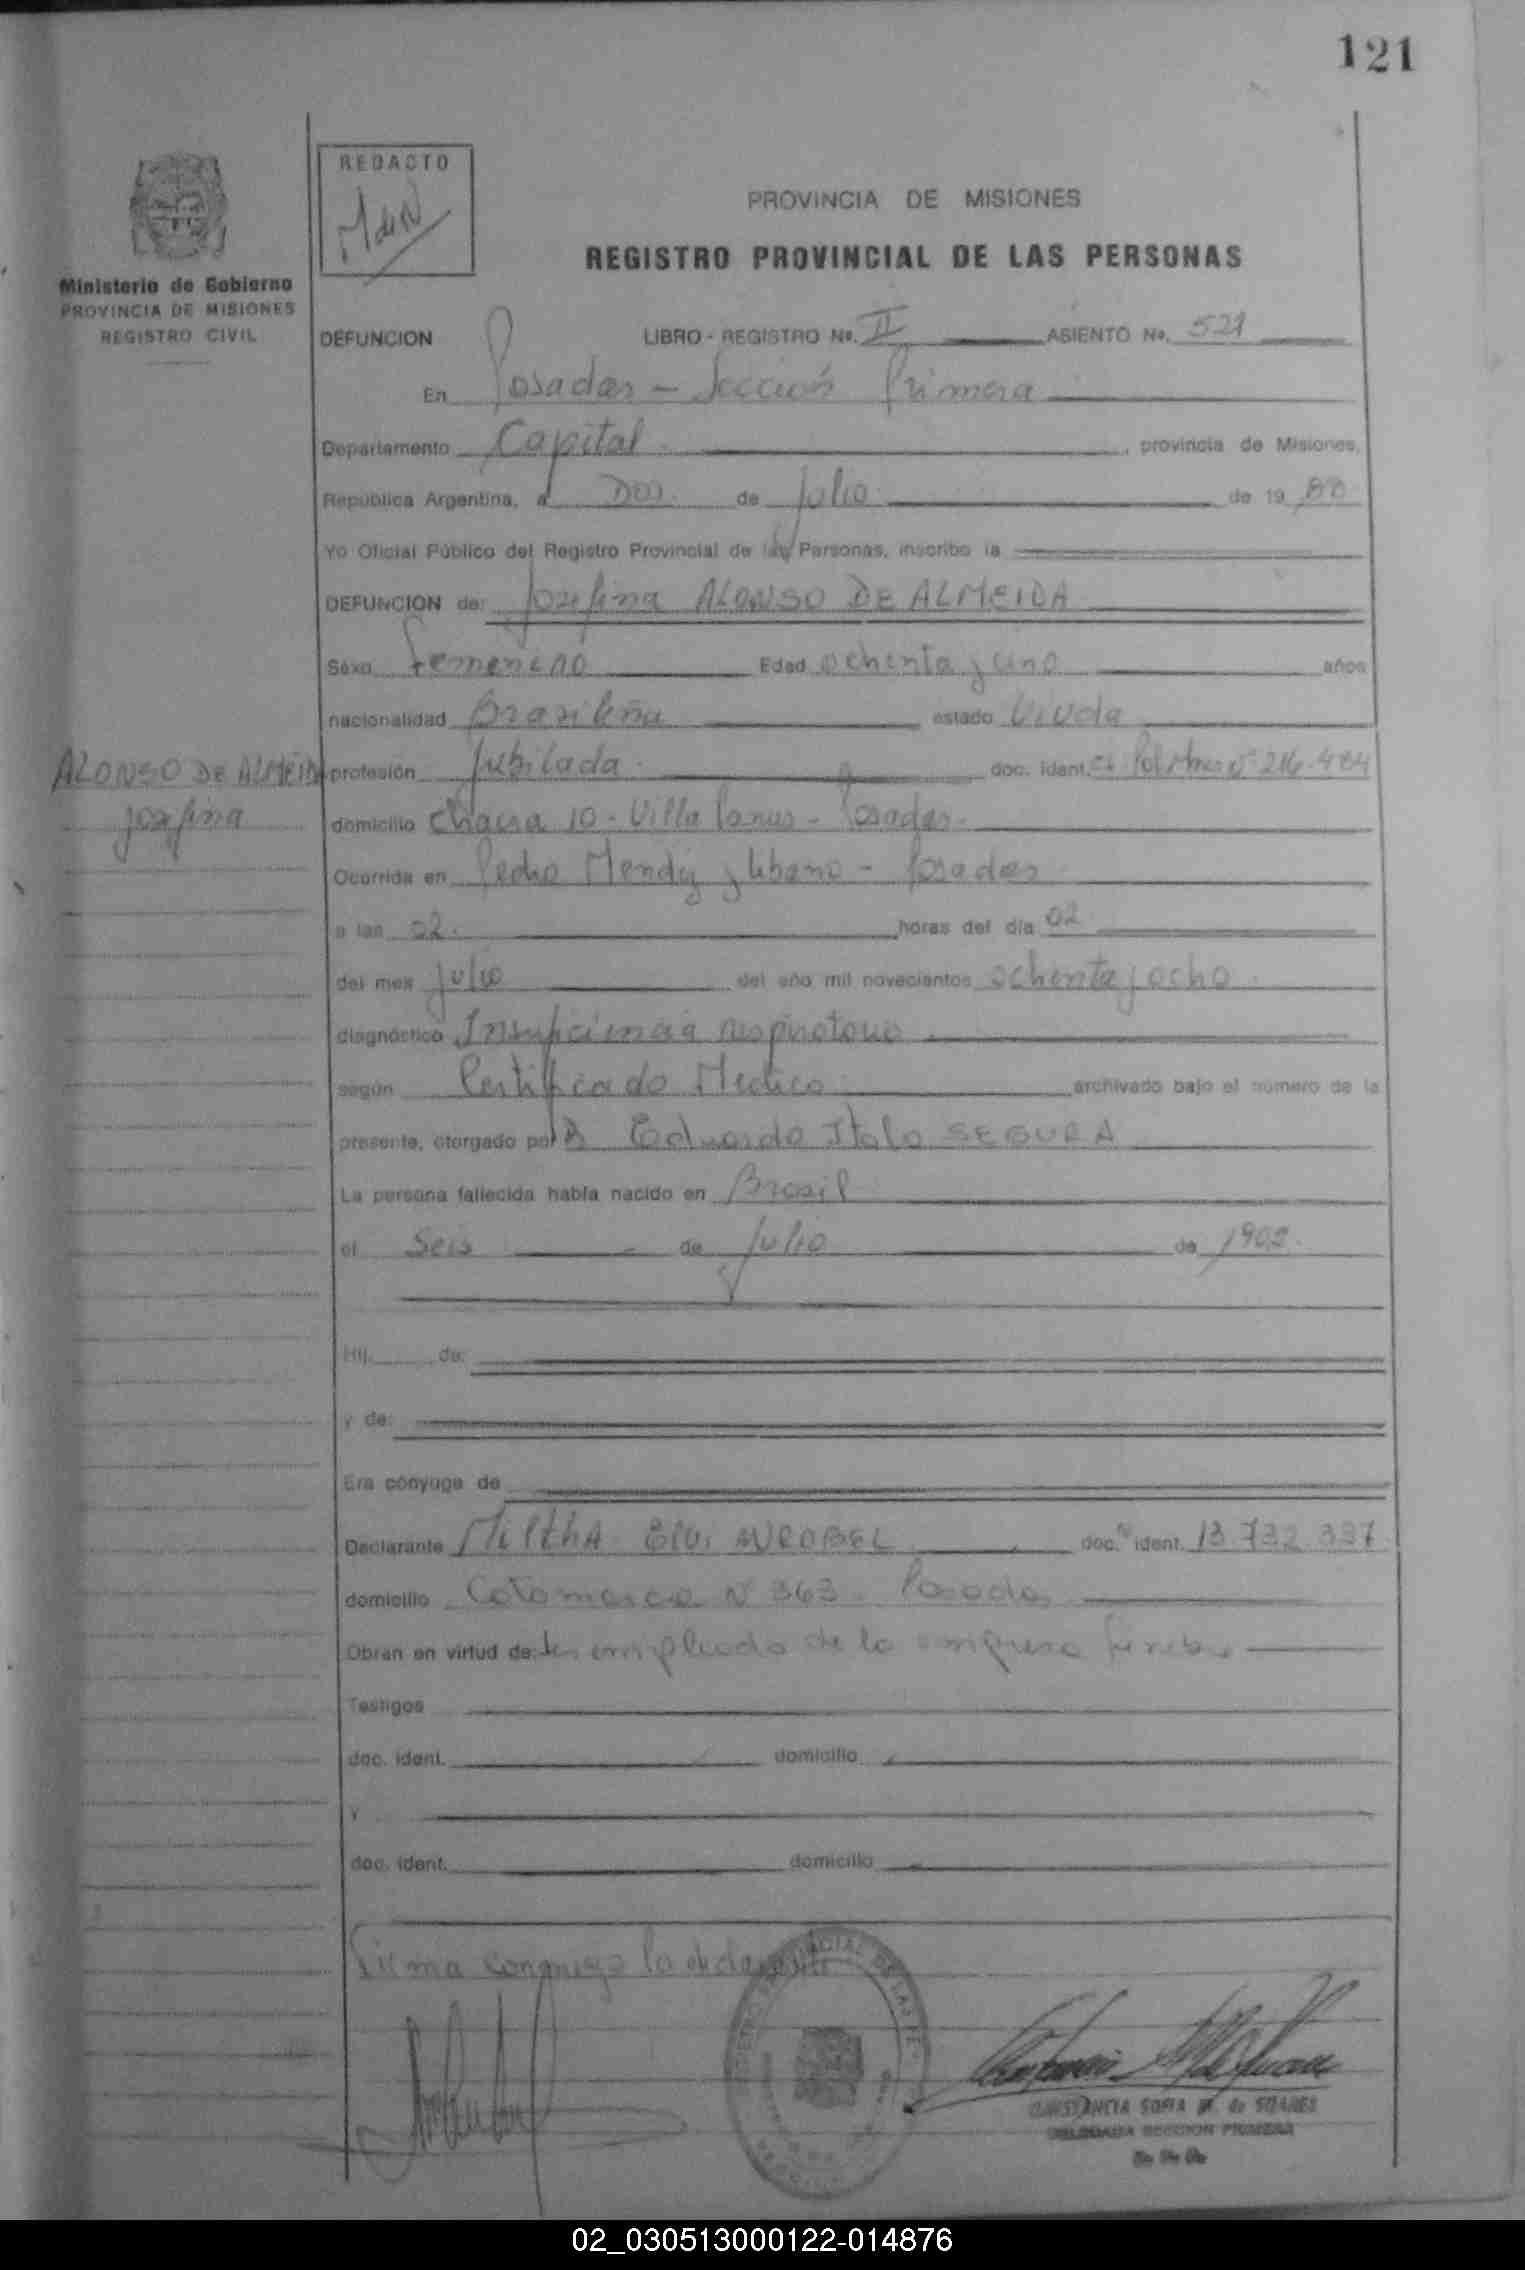 121
REDACTO
PROVINCIA DE MISIONES
REGISTRO PROVINCIAL DE LAS PERSONAS
Ministerio de Gobierno
PROVINCIA DE MISIONES
REGISTRO CIVIL
DEFUNCION LIBRO - REGISTRO No. II ASIENTO No. 521
En Posadas - Sección Primera
Departamento Capital provincia de Misiones,
República Argentina, a Dos de Julio de 19 88
Yo Oficial Público del Registro Provincial de las Personas, inscribo la
DEFUNCION de: Josefina ALONSO DE ALMEIDA
Sexo Femenino Edad ochenta y uno años
nacionalidad Brasileña estado Viuda
ALONSO DE ALMEIDA
Josefina
profesión Jubilada doc. ident. Nº 216.484
domicilio Chacra 10 - Villa Lanus - Posadas
Ocurrida en Pedro Mendez y Urbano - Posadas
a las 02 horas del día 02
del mes Julio del año mil novecientos ochenta y ocho
diagnóstico Insuficiencia respiratoria
según Certificado Medico archivado bajo el número de la
presente, otorgado por Eduardo Italo SEGURA
La persona fallecida había nacido en Brasil
el Seis de Julio de 1902
Hij de:
y de:
Era cónyuge de
Declarante MirthA Elvi WROBEL doc. ident. 13.732.337
domicilio Catamarca Nº 363 - Posadas
Obran en virtud de: ser empleado de la empresa funebre
Testigos
doc. ident. domicilio
y
doc. ident. domicilio
Firma conmigo la declarante
REGISTRO PROVINCIAL DE LAS PE
CONSTANCIA SOFIA M. de SOARES
DELEGADA SECCION PRIMERA
02_030513000122-014876